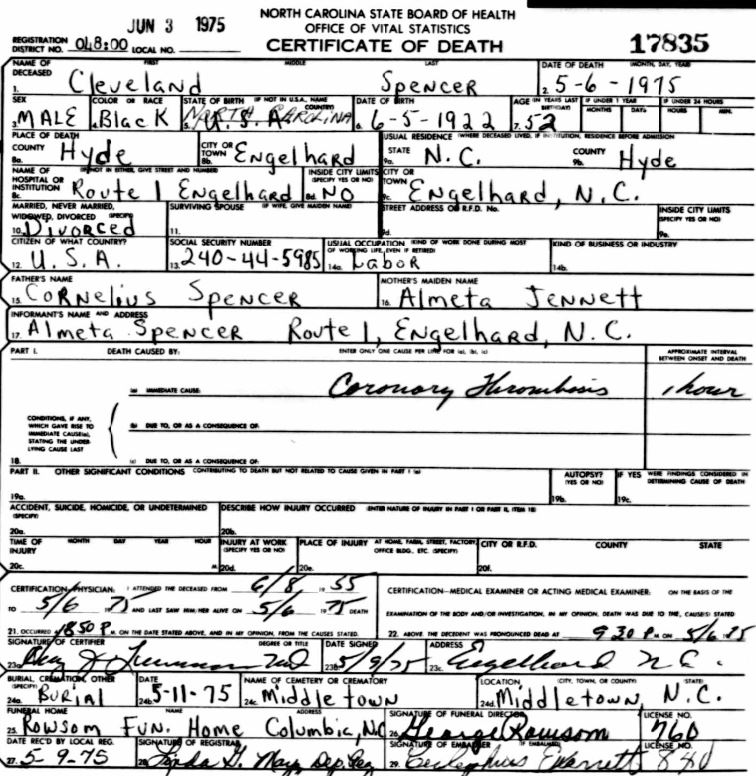 JUN 3 1975
NORTH CAROLINA STATE BOARD OF HEALTH
OFFICE OF VITAL STATISTICS
REGISTRATION DISTRICT NO. 048:00 LOCAL NO.
CERTIFICATE OF DEATH
17835
NAME OF DECEASED FIRST MIDDLE LAST DATE OF DEATH (MONTH, DAY, YEAR)
1. Cleveland Spencer 2. 5-6-1975
SEX COLOR OR RACE STATE OF BIRTH (IF NOT IN U.S.A., NAME COUNTRY) DATE OF BIRTH AGE (IN YEARS LAST BIRTHDAY) IF UNDER 1 YEAR IF UNDER 24 HOURS
MONTHS DAYS HOURS MIN.
3. MALE 4. Black 5. North Carolina U.S.A. 6. 6-5-1922 7. 52
PLACE OF DEATH USUAL RESIDENCE (WHERE DECEASED LIVED, IF INSTITUTION, RESIDENCE BEFORE ADMISSION)
COUNTY 8a. Hyde CITY OR TOWN 8b. Engelhard STATE 9a. N.C. COUNTY 9b. Hyde
NAME OF HOSPITAL OR INSTITUTION (IF NOT IN EITHER, GIVE STREET AND NUMBER) INSIDE CITY LIMITS (SPECIFY YES OR NO) CITY OR TOWN
8c. Route 1 Engelhard 8d. NO 9c. Engelhard, N.C.
MARRIED, NEVER MARRIED, WIDOWED, DIVORCED (SPECIFY) SURVIVING SPOUSE (IF WIFE, GIVE MAIDEN NAME) STREET ADDRESS OR R.F.D. No. INSIDE CITY LIMITS (SPECIFY YES OR NO)
10. Divorced 11. 9d. 9e.
CITIZEN OF WHAT COUNTRY? SOCIAL SECURITY NUMBER USUAL OCCUPATION (KIND OF WORK DONE DURING MOST OF WORKING LIFE, EVEN IF RETIRED) KIND OF BUSINESS OR INDUSTRY
12. U.S.A. 13. 240-44-5985 14a. Labor 14b.
FATHER'S NAME MOTHER'S MAIDEN NAME
15. Cornelius Spencer 16. Almeta Jennett
INFORMANT'S NAME AND ADDRESS
17. Almeta Spencer Route 1, Engelhard, N.C.
PART I. DEATH CAUSED BY: ENTER ONLY ONE CAUSE PER LINE FOR (a), (b), (c) APPROXIMATE INTERVAL BETWEEN ONSET AND DEATH
(a) IMMEDIATE CAUSE: Coronary Thrombosis 1 hour
CONDITIONS, IF ANY, WHICH GAVE RISE TO IMMEDIATE CAUSE(a), STATING THE UNDERLYING CAUSE LAST
(b) DUE TO, OR AS A CONSEQUENCE OF:
18. (c) DUE TO, OR AS A CONSEQUENCE OF:
PART II. OTHER SIGNIFICANT CONDITIONS CONTRIBUTING TO DEATH BUT NOT RELATED TO CAUSE GIVEN IN PART I (a) AUTOPSY? (YES OR NO) IF YES WERE FINDINGS CONSIDERED IN DETERMINING CAUSE OF DEATH
19a. 19b. 19c.
ACCIDENT, SUICIDE, HOMICIDE, OR UNDETERMINED (SPECIFY) DESCRIBE HOW INJURY OCCURRED (ENTER NATURE OF INJURY IN PART I OR PART II, ITEM 18)
20a. 20b.
TIME OF INJURY MONTH DAY YEAR HOUR INJURY AT WORK (SPECIFY YES OR NO) PLACE OF INJURY AT HOME, FARM, STREET, FACTORY, OFFICE BLDG., ETC. (SPECIFY) CITY OR R.F.D. COUNTY STATE
20c. M. 20d. 20e. 20f.
CERTIFICATION—PHYSICIAN: I ATTENDED THE DECEASED FROM 6/8 1955
TO 5/6 1975 AND LAST SAW HIM/HER ALIVE ON 5/6 1975 DEATH
21. OCCURRED 850 P. M. ON THE DATE STATED ABOVE, AND IN MY OPINION, FROM THE CAUSES STATED.
CERTIFICATION—MEDICAL EXAMINER OR ACTING MEDICAL EXAMINER: ON THE BASIS OF THE
EXAMINATION OF THE BODY AND/OR INVESTIGATION, IN MY OPINION, DEATH WAS DUE TO THE CAUSE(S) STATED
22. ABOVE. THE DECEDENT WAS PRONOUNCED DEAD AT 930 P. M. ON 5/6/75
SIGNATURE OF CERTIFIER DEGREE OR TITLE DATE SIGNED ADDRESS
23a. 23b. 5/9/75 23c. Engelhard N.C.
BURIAL, CREMATION, OTHER (SPECIFY) DATE NAME OF CEMETERY OR CREMATORY LOCATION (CITY, TOWN, OR COUNTY) (STATE)
24a. Burial 24b. 5-11-75 24c. Middletown 24d. Middletown, N.C.
FUNERAL HOME NAME ADDRESS SIGNATURE OF FUNERAL DIRECTOR LICENSE NO.
25. Rowsom Fun. Home Columbia, N.C. 26. George Rowsom 760
DATE REC'D BY LOCAL REG. SIGNATURE OF REGISTRAR SIGNATURE OF EMBALMER (IF EMBALMED) LICENSE NO.
27. 5-9-75 28. Linda G. Mayo, Dep. Reg. 29. Everett 840